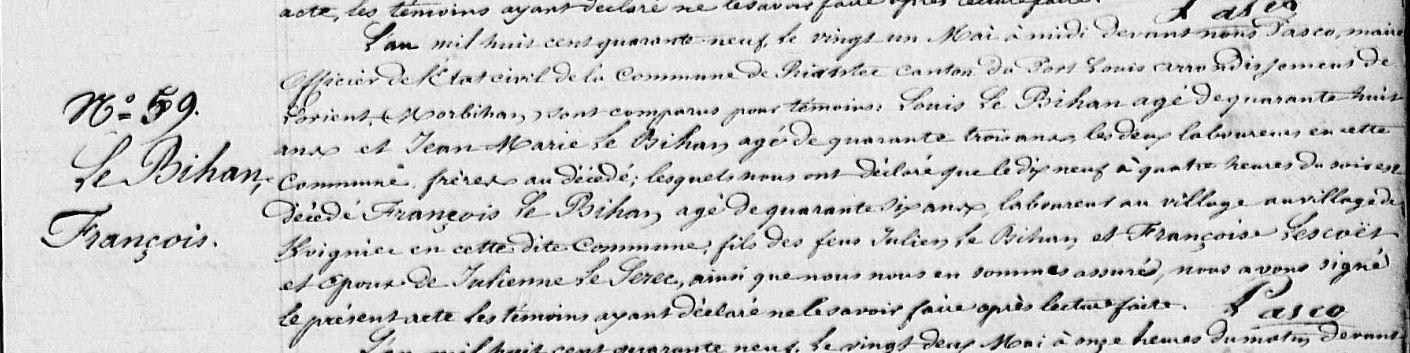 acte, les témoins ayant déclaré ne le savoir faire après lecture faite.
Pasco
L'an mil huit cent quarante neuf, le vingt un Mai à midi devant nous Pasco, maire
Officier de l'Etat civil de la Commune de Riantec canton du Port Louis arrondissement de
Lorient, (Morbihan) sont comparus pour témoins: Louis Le Bihan agé de quarante huit
ans et Jean Marie Le Bihan agé de quarante trois ans, les deux laboureurs en cette
Commune, frères au décédé; lesquels nous ont déclaré que le dix neuf à quatre heures du soir est
décédé François Le Bihan, agé de quarante six ans, laboureur au village au village de
en cette dite Commune, fils des feus Julien Le Bihan, et Françoise Lescoët
et Epoux de Julienne Le Serec, ainsi que nous nous en sommes assuré, nous avons signé
le présent acte les témoins ayant déclaré ne le savoir faire après lecture faite.
Pasco
L'an mil huit cent quarante neuf, le vingt deux Mai à onze heures du matin devant
N.º 59.
Le Bihan,
François.